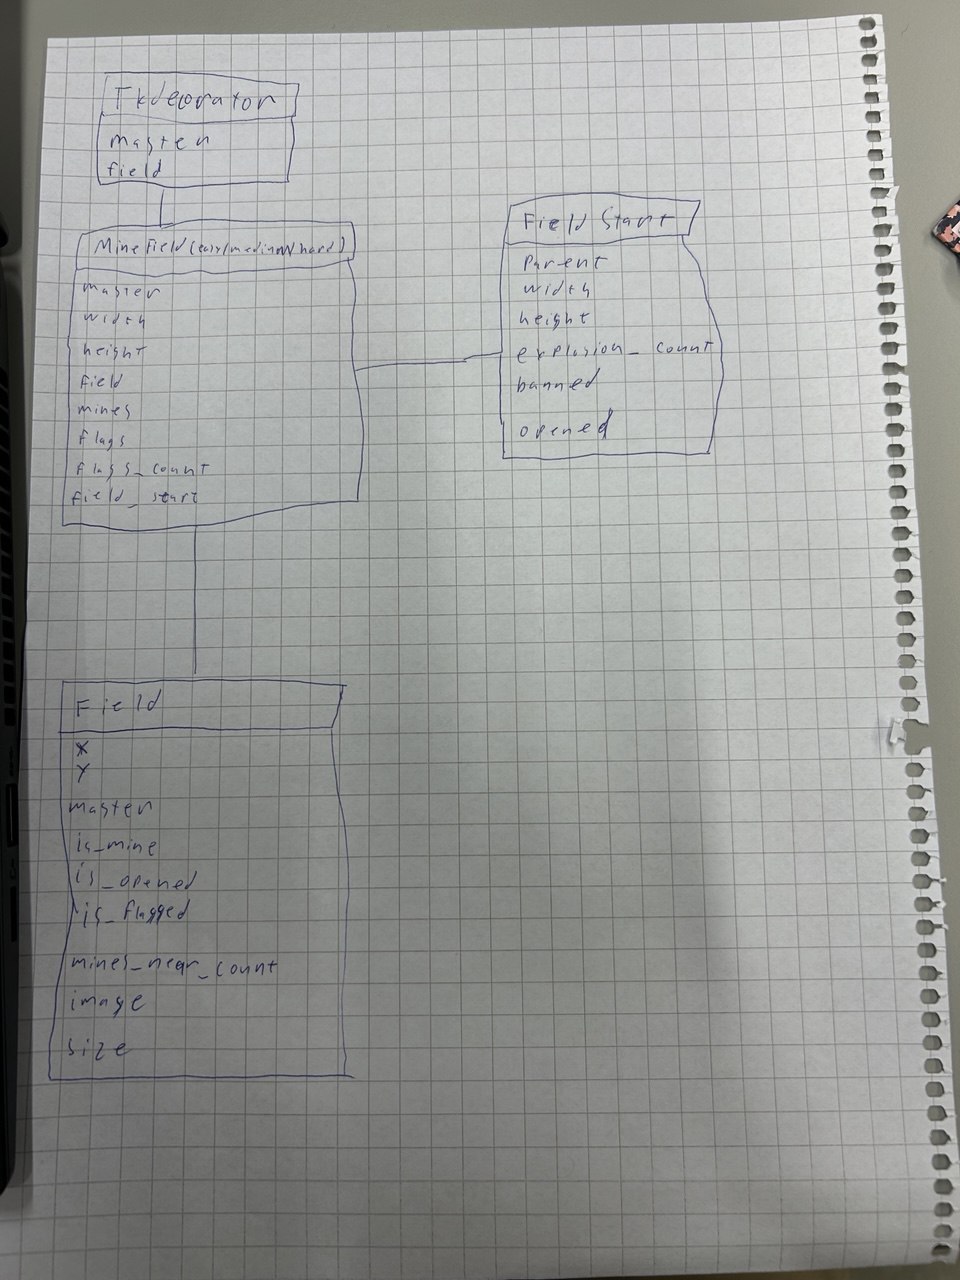 Tkdecorator
master
field
MineField(easy/medium/hard)
master
width
height
field
mines
flags
flags_count
field_start
Field Start
Parent
width
height
explosion_count
banned
opened
Field
X
Y
master
is_mine
is_opened
is_flagged
mines_near_count
image
size